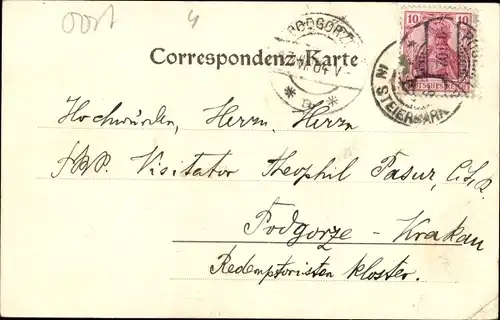 4
PODGÓRZ
10 10
DEUTSCHES REICH
Correspondenz-Karte
IN STEIERMARK
Hochwürden, Herrn, Herrn
Visitator Theophil Pasur, C.Ss.R.
Podgorze - Krakau
Redemptoristen kloster.